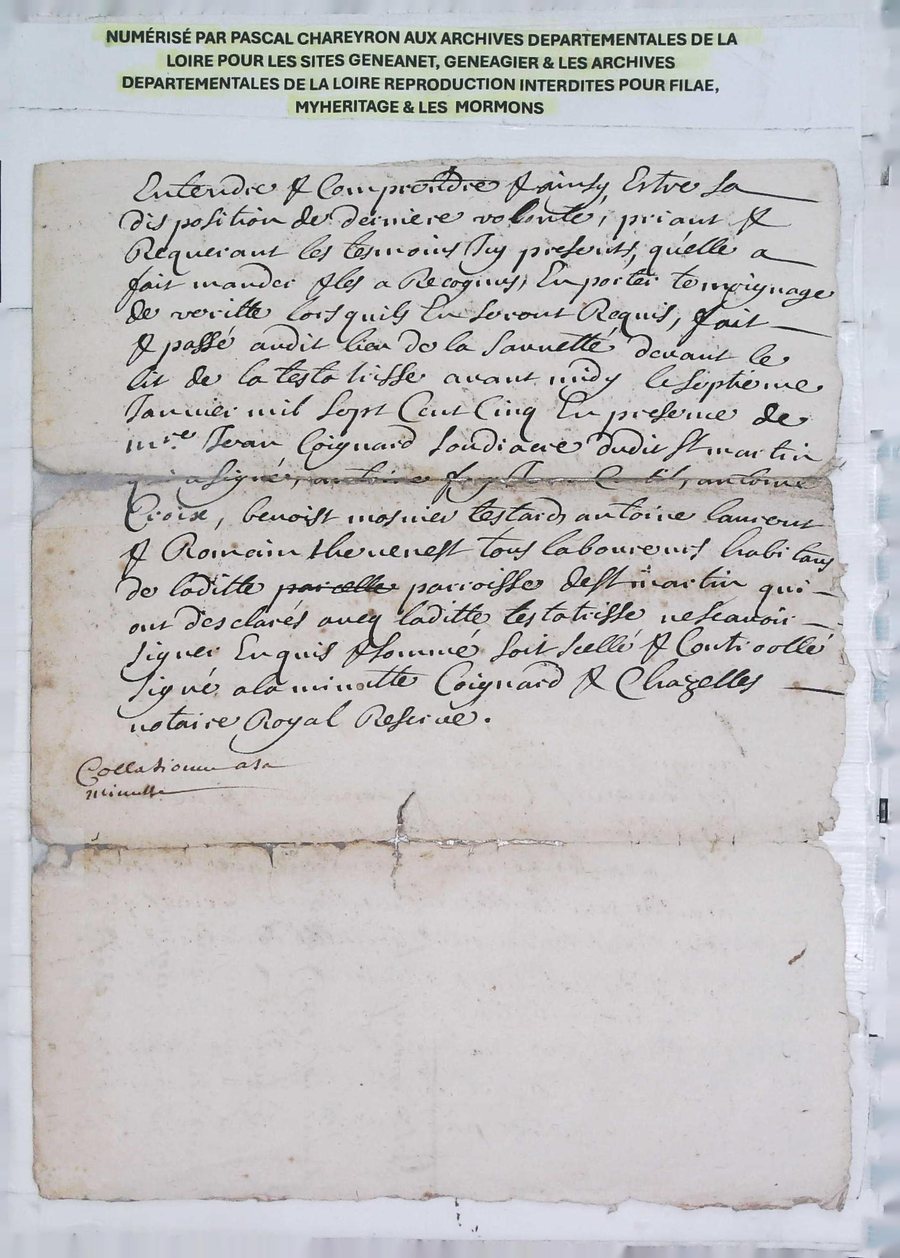 NUMÉRISÉ PAR PASCAL CHAREYRON AUX ARCHIVES DEPARTEMENTALES DE LA
LOIRE POUR LES SITES GENEANET, GENEAGIER & LES ARCHIVES
DEPARTEMENTALES DE LA LOIRE REPRODUCTION INTERDITES POUR FILAE,
MYHERITAGE & LES MORMONS
Entendre & Comprendre & ainsy Estre sa
disposition de derniere volonté, priant &
Requerant les tesmoins Icy presents, qu'elle a
fait mander & les a Recognus, En porter temoignage
de veritte lorsquils En seront Requis, fait
& passé audit lieu de la devant le
lit de la testatrisse avant midy le septieme
Janvier mil sept Cent Cinq En presense de
mre Jean Coignard soudiacre dudit St martin
qui a signé, antoine
Croix, benoist mosnier testard, antoine laurent
& Romain thevenest tous laboureurs habitans
de laditte parcelle parroisse de St martin qui
ont desclarés avec laditte testatrisse ne scavoir
signer Enquis & sommé soit scellé & Controollé
signé a la minutte Coignard & Chazelles
notaire Royal Reserve.
Collationné a sa
minutte